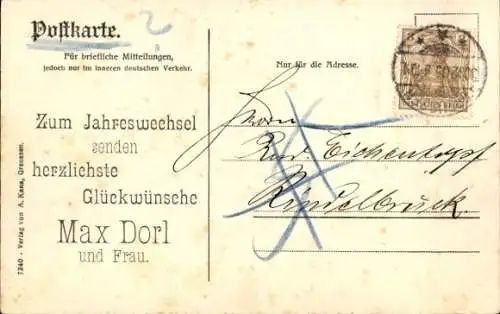 Postkarte.
Für briefliche Mitteilungen,
jedoch nur im inneren deutschen Verkehr.
Nur für die Adresse.
Zum Jahreswechsel
senden
herzlichste
Glückwünsche
Max Dorl
und Frau.
Herrn
Eichentopf
Kindelbrück.
7240 - Verlag von A. Kass, Greussen.